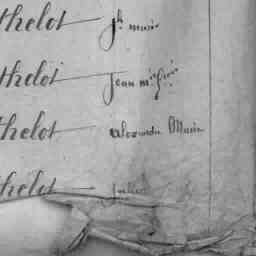 thelot jh marie
thelot Jean mie
thelot alexandre Marie
helot Jules